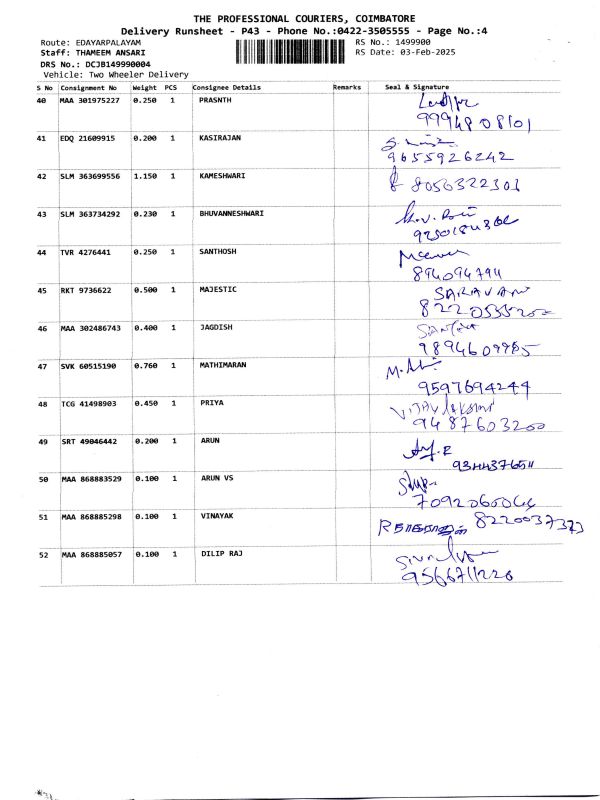 THE PROFESSIONAL COURIERS, COIMBATORE
Delivery Runsheet - P43 - Phone No.:0422-3505555 - Page No.:4
Route: EDAYARPALAYAM RS No.: 1499900
Staff: THAMEEM ANSARI RS Date: 03-Feb-2025
DRS No.: DCJB149990004
Vehicle: Two Wheeler Delivery
S No Consignment No Weight PCS Consignee Details Remarks Seal & Signature
40 MAA 301975227 0.250 1 PRASNTH
9994808101
41 EDQ 21609915 0.200 1 KASIRAJAN
9655926242
42 SLM 363699556 1.150 1 KAMESHWARI
8056322301
43 SLM 363734292 0.230 1 BHUVANNESHWARI
44 TVR 4276441 0.250 1 SANTHOSH
45 RKT 9736622 0.500 1 MAJESTIC SARAVAN
46 MAA 302486743 0.400 1 JAGDISH
47 SVK 60515190 0.760 1 MATHIMARAN
9597694244
48 TCG 41498903 0.450 1 PRIYA
9487603200
49 SRT 49046442 0.200 1 ARUN
50 MAA 868883529 0.100 1 ARUN VS
51 MAA 868885298 0.100 1 VINAYAK 8220037373
52 MAA 868885057 0.100 1 DILIP RAJ
9566711226